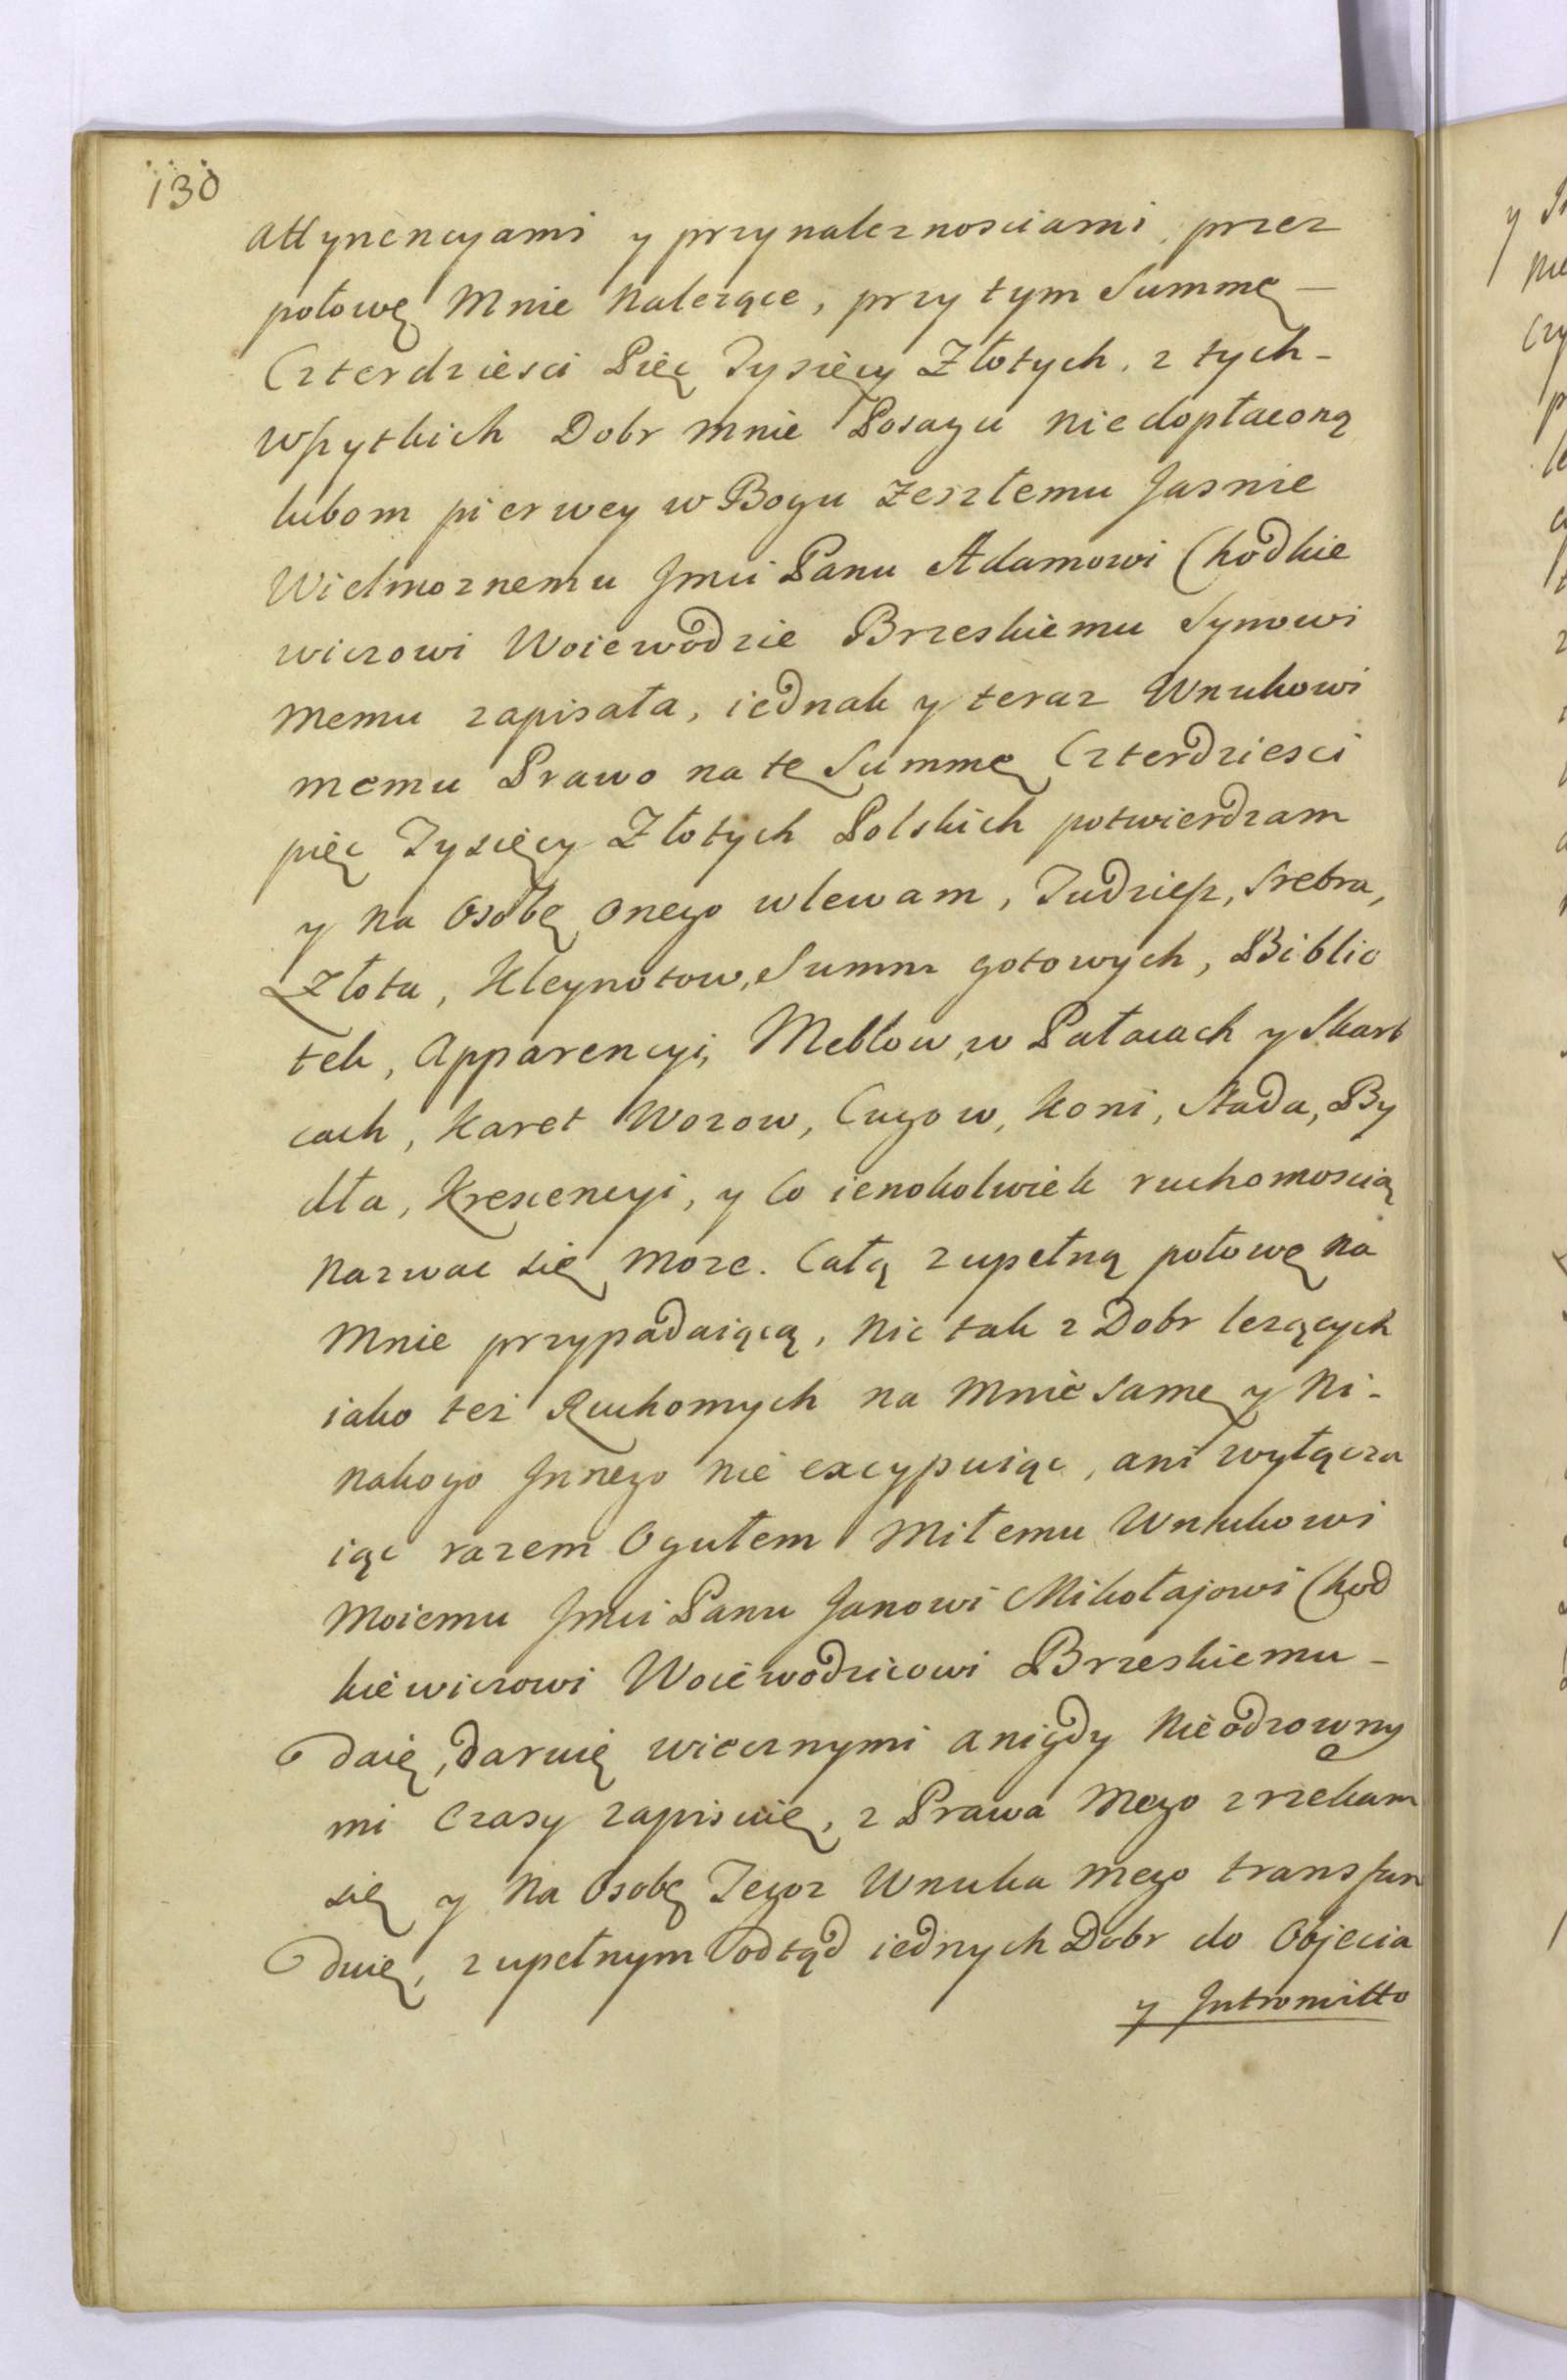 130
attynencyami y przynaleznosciami, przez
połowę Mnie Nalezące, przytym Summę —
Czterdziesci Pięc Tysięcy Złotych, z tych -
wszytkich Dobr mnie Posagu niedopłaconą
lubom pierwey w Bogu zeszłemu Jasnie
Wielmoznemu Jmci Panu Adamowi Chodkie
wiczowi Woiewodzie Brzeskiemu Synowi
memu zapisała, iednak y teraz Wnukowi
memu Prawo na tę Summę Czterdziesci
pięc Tysięcy Złotych Polskich potwierdzam
y na Osobę onego wlewam, Tudziesz, Srebra,
Złota, Kleynotow, Summ gotowych, Biblio
tek, Apparencyi, Meblow, w Pałacach y Skarb
cach, Karet Wozow, Cugow, Koni, Stada, By
dła, Krescencyi, y co ienokolwiek ruchomoscią
nazwac się moze. Całą zupełną połowę na
Mnie przypadaiącą, nic tak z Dobr lezących
iako tez Ruchomych na Mnie Samę y Ni-
nakogo Jnnego nie excypuiąc, ani wyłącza
iąc razem Ogułem Miłemu Wnukowi
Moiemu Jmci Panu Janowi Mikołajowi Chod
kiewiczowi Woiewodzicowi Brzeskiemu -
daię, daruię wiecznymi anigdy Nieodzowny
mi Czasy zapisuię, z Prawa Mego zrzekam
się y Na Osobę Tegoz Wnuka mego transfun
duię, zupełnym odtąd iednych Dobr do Objecia
y Jntromitto